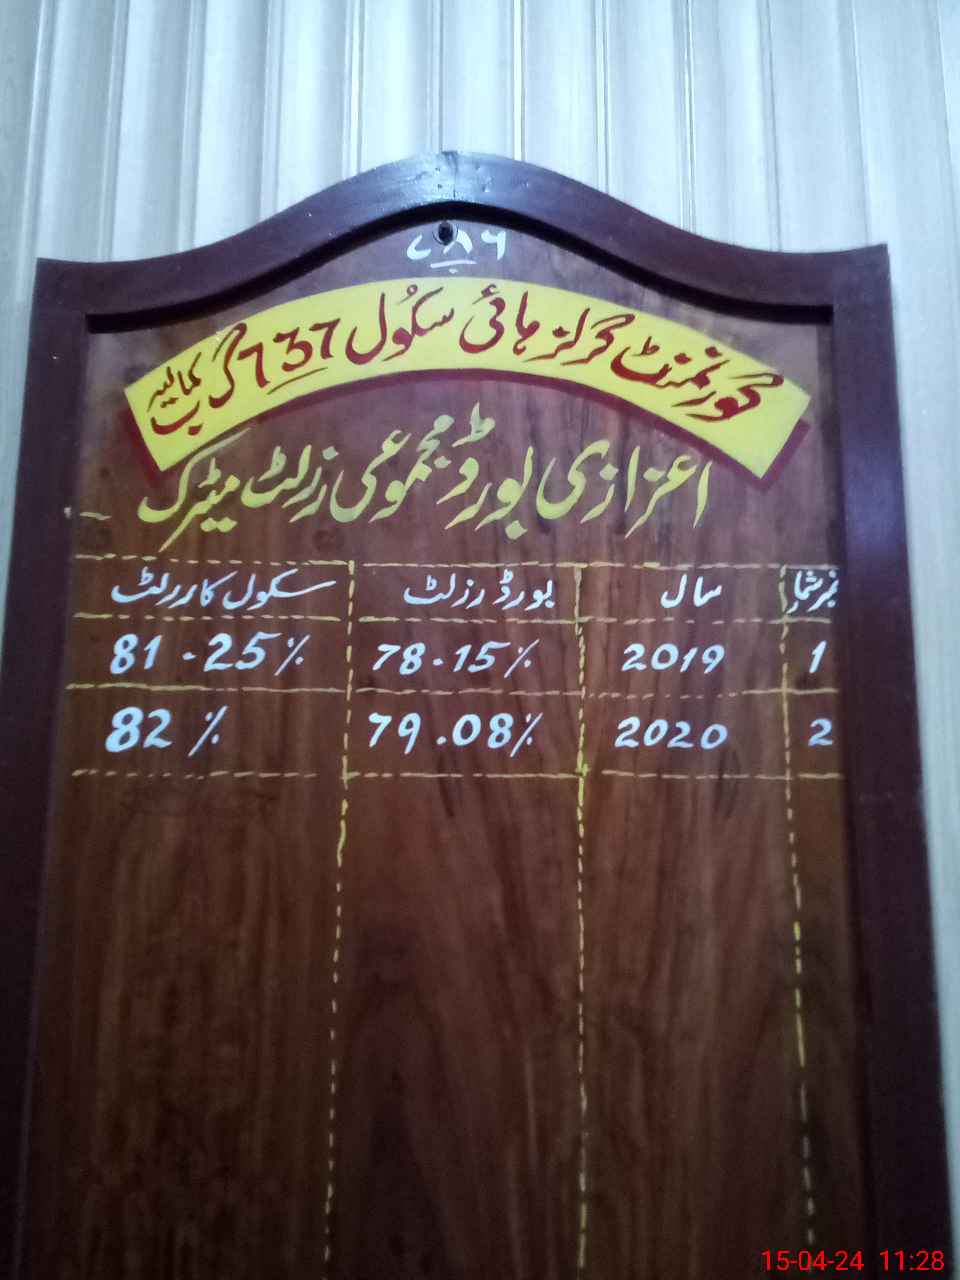 ۷۸۶
گورنمنٹ گرلز ہائی سکُول 737 گ ب کمالیہ
اعزازی بورڈ مجموعی رزلٹ میٹرک
نمبرشمار سال بورڈ رزلٹ سکول کا رزلٹ
1 2019 78.15% 81.25%
2 2020 79.08% 82%
15-04-24 11:28